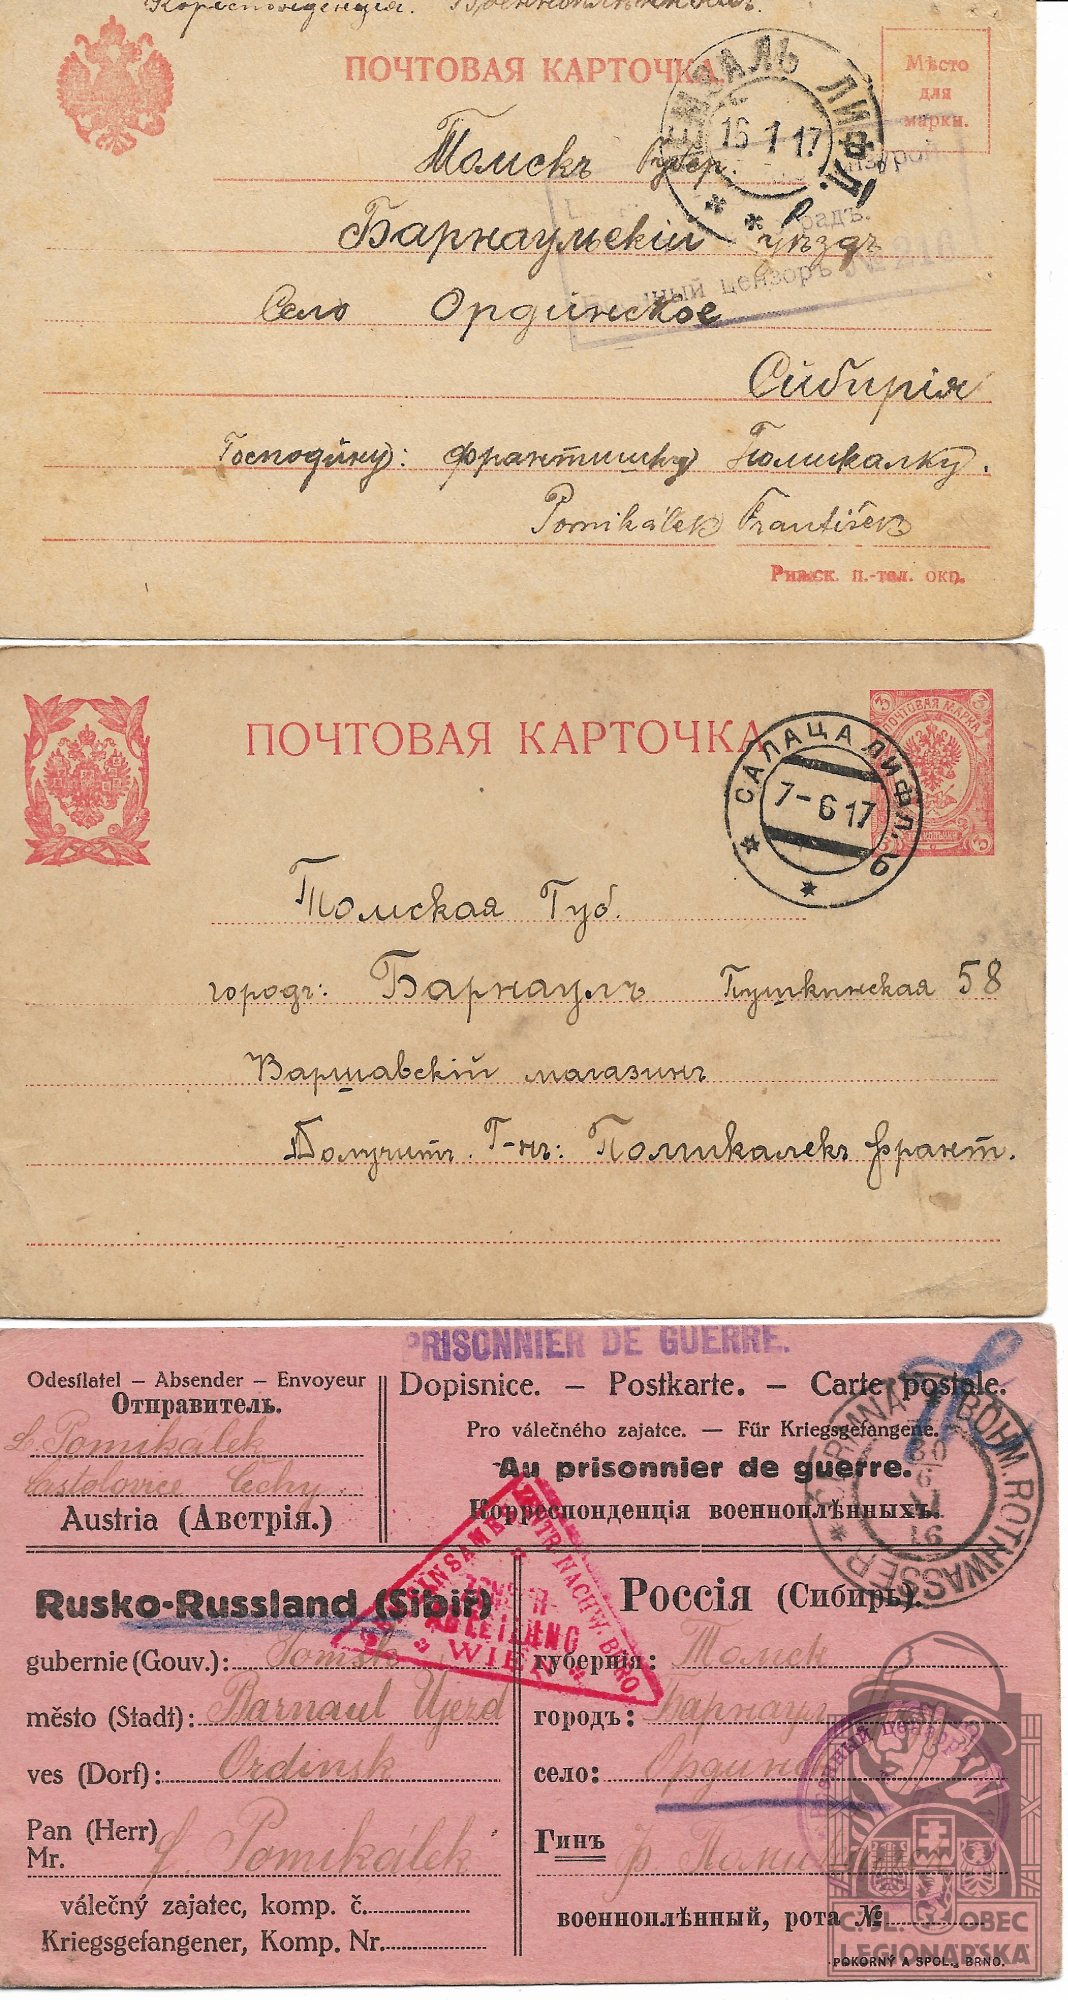 Кореспонденція. Военноплѣннымъ.
ПОЧТОВАЯ КАРТОЧКА.
Мѣсто
для
марки.
ЛИФЛ.
16 1 17
Томскъ Губер.
Барнаульскій уѣздъ
цензоръ №
Село Ординское
Сибирія
Господину: Франтишку Помикалку.
Pomikálek František
Рижск. п.-тел. окр.
ПОЧТОВАЯ КАРТОЧКА
ПОЧТОВАЯ МАРКА
3 3
3 3
САЛАЦА ЛИФЛ.
7-6 17
Томская Губ.
городъ: Барнаулъ Пушкинская 58
Варшавскій магазинъ
Получит. Г-нъ: Помикалекъ Франт.
PRISONNIER DE GUERRE.
Odesílatel – Absender – Envoyeur
Отправитель.
L. Pomikalek
Častolovice Čechy.
Austria (Австрія.)
Dopisnice. — Postkarte. — Carte postale.
Pro válečného zajatce. — Für Kriegsgefangene.
Au prisonnier de guerre.
Корреспонденція военноплѣнныхъ.
BÖHM. ROTHWASSER
30
16
NACHW. BÜRO
WIEN
Rusko-Russland (Sibiř)
gubernie (Gouv.): Tomsk
město (Stadt): Barnaul Ujezd
ves (Dorf): Ordinsk
Pan (Herr)
Mr. F. Pomikalek
válečný zajatec, komp. č.
Kriegsgefangener, Komp. Nr.
Россія (Сибирь).
губернія: Томск
городъ: Барнаул
село:
Гинъ
военноплѣнный, рота №
Č.SL. OBEC
LEGIONÁŘSKÁ
POKORNÝ A SPOL., BRNO.